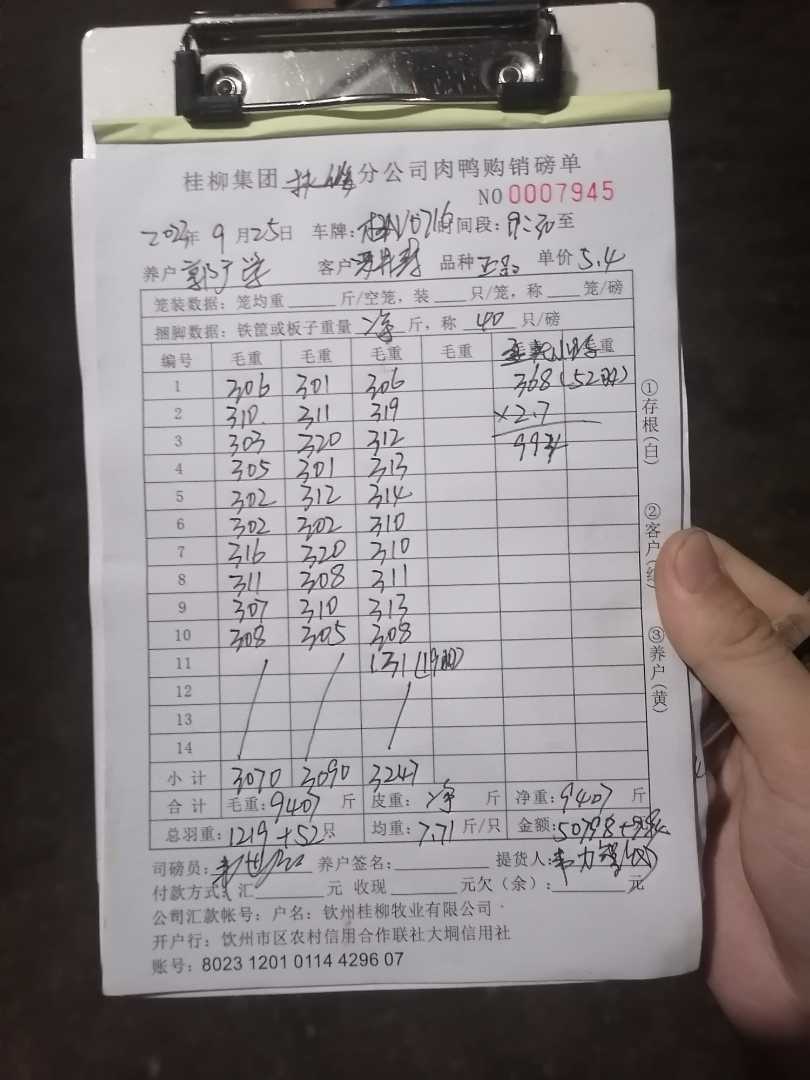 桂柳集团 扶绥 分公司肉鸭购销磅单
NO 0007945
2023年 9月25日 车牌: 0716 时间段: 9:30至
养户 郭广学 客户 品种 正品 单价 5.4
笼装数据: 笼均重 斤/空笼, 装 只/笼, 称 笼/磅
捆脚数据: 铁筐或板子重量 净 斤, 称 40 只/磅
编号 毛重 毛重 毛重 毛重 毛重
1 306 301 306 368 (52只)
2 310 311 319 ×2.7
3 303 320 312 994
4 305 301 313
5 302 312 314
6 302 302 310
7 316 320 310
8 311 308 311
9 307 310 313
10 308 305 308
11 131 (19只)
12
13
14
小计 3070 3090 3247
合计 毛重: 9407 斤 皮重: 净 斤 净重: 9407 斤
总羽重: 1219+52只 均重: 7.71 斤/只 金额: 50798+994
司磅员: 养户签名: 提货人:
付款方式: 汇 元 收现 元欠(余): 元
公司汇款帐号: 户名: 钦州桂柳牧业有限公司
开户行: 钦州市区农村信用合作联社大垌信用社
账号: 8023 1201 0114 4296 07
①存根(白)
②客户(红)
③养户(黄)